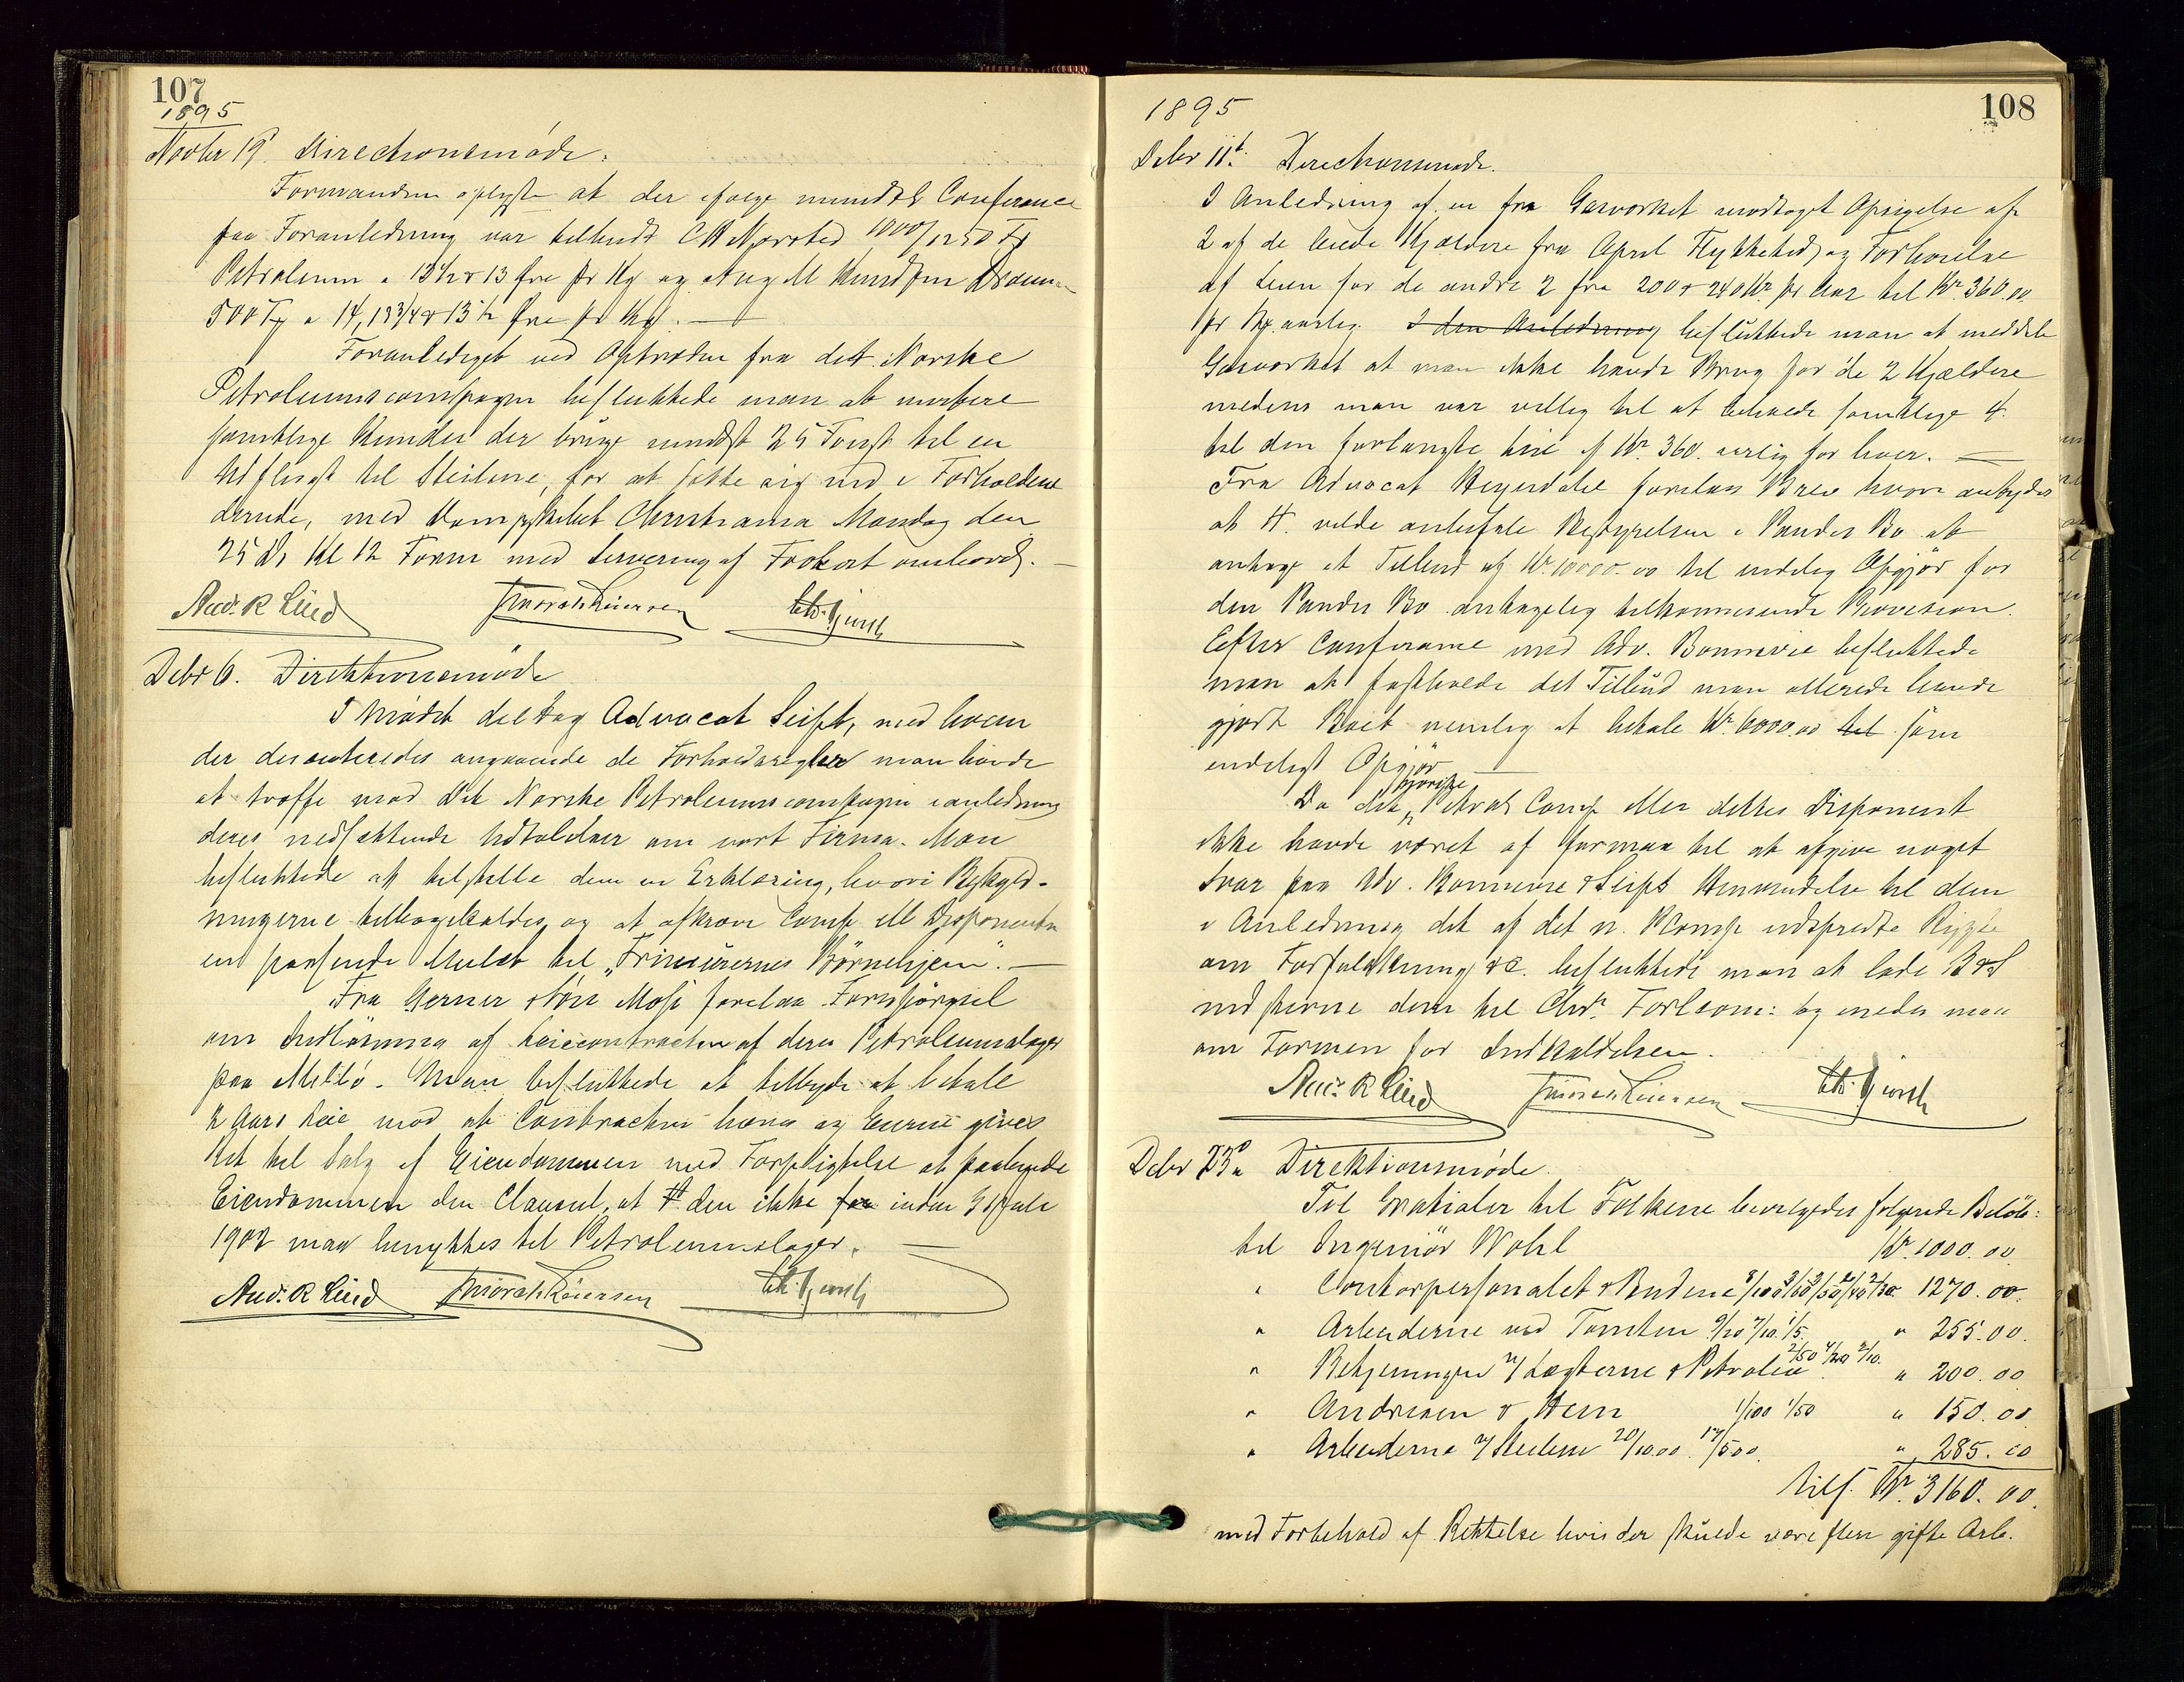 107
1895
Novbr 19. Direchonsmöde.
Formanden oplyste at der ifølge mundtl Conference
paa Foranledning var tilbudt C H Narsted 1000/1250 Fj
Petroleum a 13 1/2 & 13 Øre pr Kg og Aug M
500 Fj a 14, 13 3/4 & 13 1/2 Øre pr Kg. —
Foranlediget ved Optræden fra det Norske
Petroleumscompagni besluttede man at invitere
samtlige Kunder der bruge mindst 25 Fustg til en
Udflugt til Steilene, for at sætte sig ind i Forholdene
dernede, med Dampskibet Christiania Mandag den
25 ds Kl 12 Form med Servering af Frokost ombord. —
Aud. R Lind
Debr 6. Direktionsmöde
I Mödet deltog Advocat Seip, med hvem
der discuteredes angaaende de Forholdsregler man burde
at træffe mod Det Norske Petroleumscompagni i anledning
deres nedsættende Udtalelser om vort Firma. Man
besluttede at tilstille dem en Erklæring, hvori Beskyld-
ningerne tilbagekaldes, og at afkræve Comp ell Disponenten
en passende Mulct til „Frimurernes Börnehjem". —
Fra Gerner Moss forelaa Forespörgsel
om Indløsning af Leiecontracten af deres Petroleumslager
paa Mellö. Man besluttede at tilbyde at betale
2 Aars Leie mod at Contracten hæves og Eierne gives
Ret til Salg af Eiendommen med Forpligtelse at paalægge
Eiendommen den Clausul, at den ikke inden
1902 maa benyttes til Petroleumslager. —
Aud. R Lind
108
1895
Debr 11t. Direchonsmöde.
I Anledning af en fra Gasværket modtaget Opsigelse af
2 af de leiede Kjældere fra April Flyttetid, og Forhøielse
af Leien for de andre 2 fra 200 & 240 Kr. pr Aar til Kr. 360.00
pr Kj. aarlig. I den Anledning besluttede man at meddele
Gasværket at man ikke havde Brug for de 2 Kjældere
medens man var villig til at beholde samtlige 4
til den forlangte Leie af Kr. 360. aarlig for hver. —
Fra Advocat Heyerdahl forelaa Brev hvori antydes
at H. vilde anbefale Bestyrelsen i Vander Bo at
antage et Tilbud af Kr. 10000.00 til endelig Opgjør for
den Vander Bo antagelig tilkommende Provision.
Efter Conferance med Adv. Bonnevie besluttede
man at fastholde det Tilbud man allerede havde
gjort Boet nemlig at betale Kr. 6000.00 til som
endeligt Opgjør —
Da det norske Petrol Comp eller dettes Disponent
ikke havde været at formaa til at afgive noget
Svar paa Adv. Bonnevie & Seips Henvendelse til dem
i Anledning det af det n. PComp udspredte Rygte
om Forfalskning &c. besluttede man at lade B & S
indstevne dem til Chr. Forlcom: og enedes man
om Formen for Indkaldelsen.
Aud. R Lind
Debr 23d. Direktionsmöde
Til Gratialer til Folkene bevilgedes følgende Beløb:
til Ingeniör Wohl Kr. 1000.00
" Contorpersonalet & Budene 1270.00
" Arbeiderne ved Tomten 9/20 7/10 1/5 " 255.00
" Betjeningen a/ Lægterne & Petrolea 2/50 4/20 2/10. " 200.00
" Andresen & Hem 1/100 1/50 " 150.00
" Arbeiderne a/ Steilene 20/10.00 17/500. " 285.00
tils. Kr. 3160.00.
med Forbehold af Rettelse hvis der skulde være flere gifte Arb.